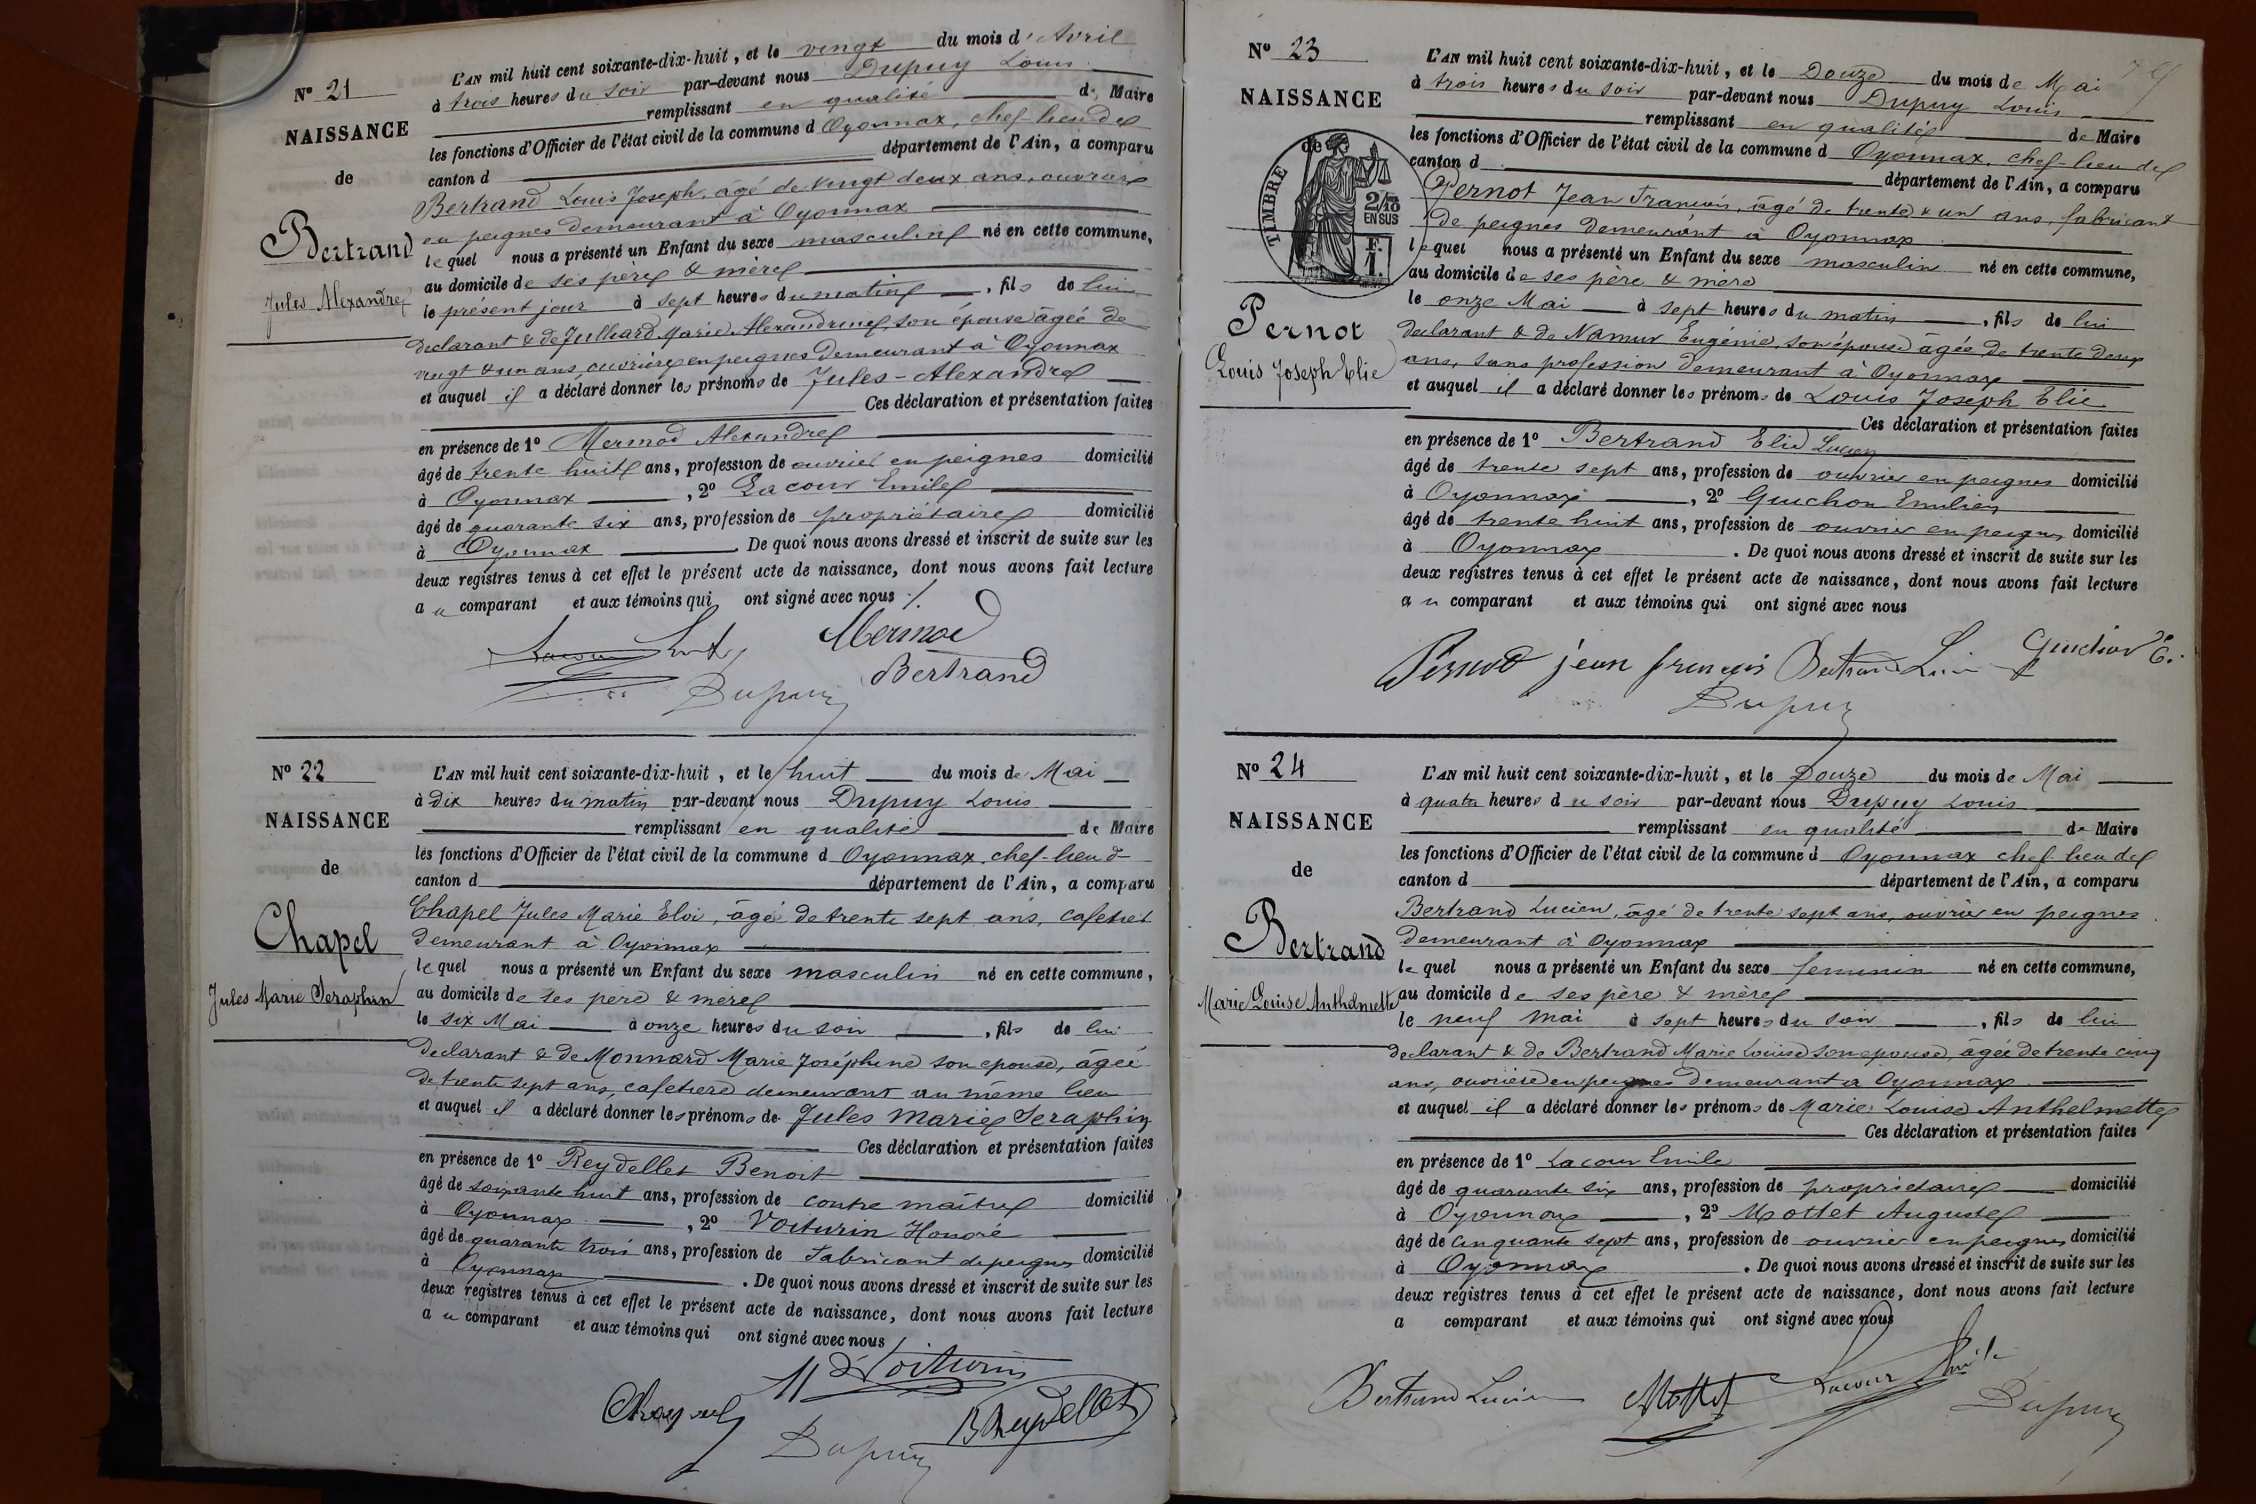 N° 21
NAISSANCE
de
Bertrand
Jules Alexandre
L'AN mil huit cent soixante-dix-huit, et le vingt du mois d'Avril
à trois heures du soir par-devant nous Dupuy Louis
remplissant en qualité de Maire
les fonctions d'Officier de l'état civil de la commune d Oyonnax, chef-lieu de
canton d département de l'Ain, a comparu
Bertrand Louis Joseph, âgé de vingt deux ans, ouvrier
en peignes demeurant à Oyonnax
lequel nous a présenté un Enfant du sexe masculin né en cette commune,
au domicile de ses père & mère
le présent jour à sept heures du matin, fils de lui
déclarant & de Julliard Marie Alexandrine, son épouse âgée de
vingt & un ans, ouvrière en peignes demeurant à Oyonnax
et auquel il a déclaré donner les prénoms de Jules-Alexandre
Ces déclaration et présentation faites
en présence de 1° Mermod Alexandre
âgé de trente huit ans, profession de ouvrier en peignes domicilié
à Oyonnax, 2° Lacour Emile
âgé de quarante six ans, profession de propriétaire domicilié
à Oyonnax. De quoi nous avons dressé et inscrit de suite sur les
deux registres tenus à cet effet le présent acte de naissance, dont nous avons fait lecture
au comparant et aux témoins qui ont signé avec nous ./.
Lacour Mermod
Bertrand
Dupuy
N° 22
NAISSANCE
de
Chapel
Jules Marie Seraphin
L'AN mil huit cent soixante-dix-huit, et le huit du mois de Mai
à dix heures du matin par-devant nous Dupuy Louis
remplissant en qualité de Maire
les fonctions d'Officier de l'état civil de la commune d Oyonnax, chef-lieu d
canton d département de l'Ain, a comparu
Chapel Jules Marie Eloi, âgé de trente sept ans, cafetier
demeurant à Oyonnax
lequel nous a présenté un Enfant du sexe masculin né en cette commune,
au domicile de ses père & mère
le six Mai à onze heures du soir, fils de lui
déclarant & de Monnard Marie Joséphine son epouse, âgée
de trente sept ans, cafetiere demeurant au même lieu
et auquel il a déclaré donner les prénoms de Jules Marie Seraphin
Ces déclaration et présentation faites
en présence de 1° Reydellet Benoit
âgé de soixante huit ans, profession de contre maître domicilié
à Oyonnax, 2° Voiturin Honoré
âgé de quarante trois ans, profession de fabricant de peignes domicilié
à Oyonnax. De quoi nous avons dressé et inscrit de suite sur les
deux registres tenus à cet effet le présent acte de naissance, dont nous avons fait lecture
au comparant et aux témoins qui ont signé avec nous
H Voiturin
Chapel B Reydellet
Dupuy
N° 23
NAISSANCE
de
TIMBRE
2/10
EN SUS
F.
1.
Pernot
Louis Joseph Elie
L'AN mil huit cent soixante-dix-huit, et le Douze du mois de Mai
à trois heures du soir par-devant nous Dupuy Louis
remplissant en qualité de Maire
les fonctions d'Officier de l'état civil de la commune d Oyonnax, chef-lieu de
canton d département de l'Ain, a comparu
Pernot Jean François, âgé de trente & un ans, fabricant
de peignes demeurant à Oyonnax
lequel nous a présenté un Enfant du sexe masculin né en cette commune,
au domicile de ses père & mère
le onze Mai à sept heures du matin, fils de lui
declarant & de Namur Eugénie, son épouse âgée de trente deux
ans, sans profession demeurant à Oyonnax
et auquel il a déclaré donner les prénoms de Louis Joseph Elie
Ces déclaration et présentation faites
en présence de 1° Bertrand Elie Lucien
âgé de trente sept ans, profession de ouvrier en peignes domicilié
à Oyonnax, 2° Guichon Emilien
âgé de trente huit ans, profession de ouvrier en peignes domicilié
à Oyonnax. De quoi nous avons dressé et inscrit de suite sur les
deux registres tenus à cet effet le présent acte de naissance, dont nous avons fait lecture
au comparant et aux témoins qui ont signé avec nous
Pernod jean françois Bertrand Guichon E.
Dupuy
N° 24
NAISSANCE
de
Bertrand
Marie Louise Anthelmette
L'AN mil huit cent soixante-dix-huit, et le Douze du mois de Mai
à quatre heures du soir par-devant nous Dupuy Louis
remplissant en qualité de Maire
les fonctions d'Officier de l'état civil de la commune d Oyonnax chef-lieu de
canton d département de l'Ain, a comparu
Bertrand Lucien, âgé de trente sept ans, ouvrier en peignes
demeurant à Oyonnax
lequel nous a présenté un Enfant du sexe feminin né en cette commune,
au domicile de ses père & mère
le neuf mai à sept heures du soir, fils de lui
declarant & de Bertrand Marie Louise son epouse, âgée de trente cinq
ans, ouvrière en peignes demeurant à Oyonnax
et auquel il a déclaré donner les prénoms de Marie Louise Anthelmette
Ces déclaration et présentation faites
en présence de 1° Lacour Emile
âgé de quarante six ans, profession de propriétaire domicilié
à Oyonnax, 2° Mottet Auguste
âgé de cinquante sept ans, profession de ouvrier en peignes domicilié
à Oyonnax. De quoi nous avons dressé et inscrit de suite sur les
deux registres tenus à cet effet le présent acte de naissance, dont nous avons fait lecture
a comparant et aux témoins qui ont signé avec nous
Bertrand Lucien Mottet Lacour Emile
Dupuy